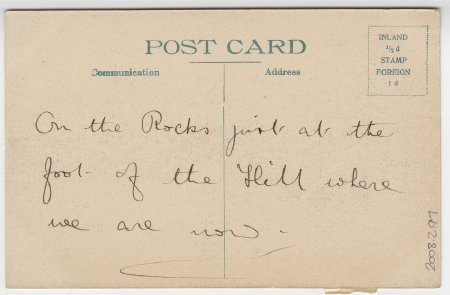 POST CARD
Communication
Address
INLAND
½d
STAMP
FOREIGN
1d
On the Rocks just at the
foot of the Hill where
we are now.